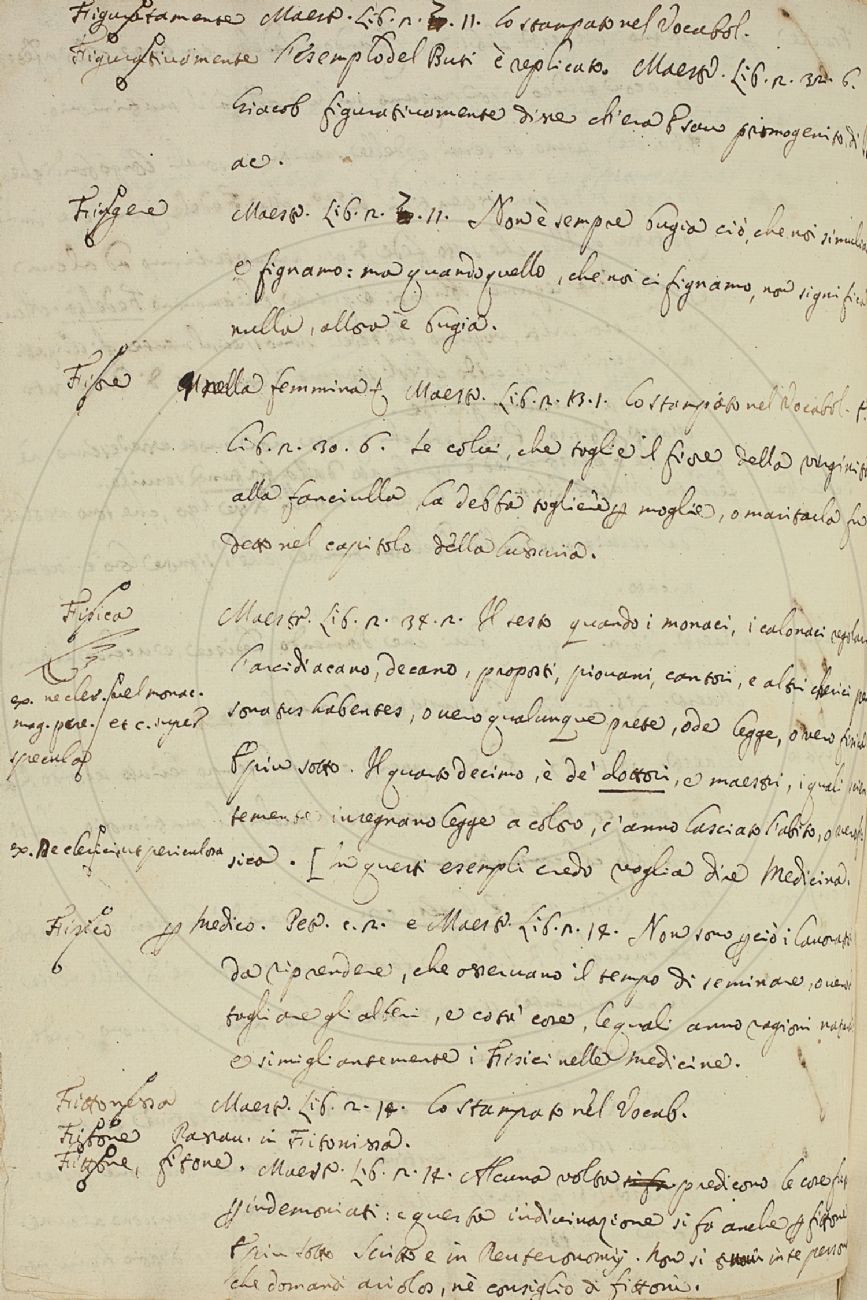 Figuratamente Maestr. Lib. 2. 11. lo stampato nel Vocabol.
Figurativamente l'esemplo del Buti è replicato. Maestr. Lib. 2. 32. 6.
Giacob figurativamente disse ch'era Esau primogenito d'
ac.
Fingere Maestr. Lib. 2. 11. Non è sempre bugia ciò, che noi simulia
e fignamo: ma quando quello, che noi ci fignamo, non significa
nulla, allora è bugia.
Fiore nella femmina Maestr. Lib. 2. 13. 1. lo stampato nel Vocabol.
Lib. 2. 30. 6. Se colui, che toglie il fiore della virginità
alla fanciulla la debba togliere moglie, o maritarla fu
detto nel capitolo della lussuria.
Fisica Maestr. Lib. 2. 34. 2. Il sesto quando i monaci, i calonaci regolari
l'arcidiacano, decano, proposti, piovani, cantori, e altri cherici per
ex. ne cler. vel monac.
sonatus habentes, o vero qualunque prete, ode legge, o vero fisica
mag. pere. et c. super
specula
E più sotto. Il quarto decimo, è de' dottori, e maestri, i quali
temente insegnano legge a coloro, c'anno lasciato l'abito, o vero fi
ex. De cleri periculosa
sica. [In questi esempli credo voglia dire Medicina.
Fisico medico. Pet. c. 2. e Maestr. Lib. 2. 14. Non sono però i lavorato
da riprendere, che osservano il tempo di seminare, o vero
tagliare gli alberi, e cota' cose, le quali anno ragioni natu
e simigliantemente i Fisici nelle medicine.
Fittonessa Maestr. Lib. 2. 14. lo stampato nel Vocab.
Fitone Passav. in Fitonissa.
Fittone, fitone. Maestr. Lib. 2. 14. Alcuna volta predicono le cose
indemoniati: e questa indivinazione si fa anche fittoni
E più sotto Scritto è in Deuteronomij. Non si in te person
che domandi ariolos, nè consiglio di fittoni.